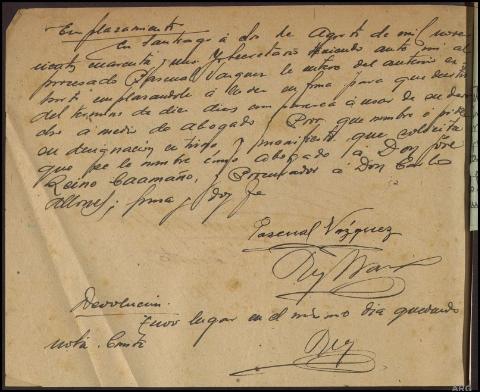 Emplazamiento
En Santiago a dos de Agosto de mil nove
cientos cuarenta y uno Yo Secretario teniendo ante mi al
procesado Pascual Vazquez le entero del anterior
emplazandole en forma para que dentro
del termino de diez dias comparezca a usar de su dere
cho a medio de Abogado y Proc. que nombre o pida
su designacion en turno, y manifiesta que solicita
que se le nombre como Abogado a Don José
Reino Caamaño, y Procurador a Don
firma y doy fe
Pascual Vázquez
Rey
Devolucion.
Tuvo lugar en el mismo dia quedando
nota.
Rey
ARG